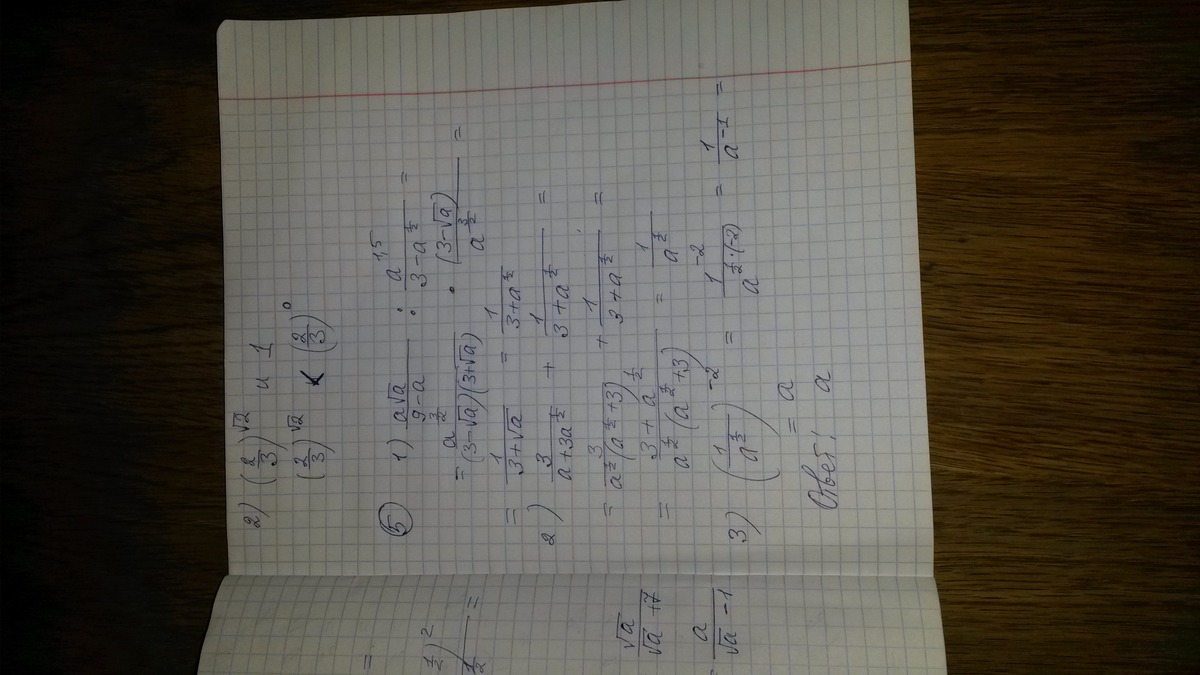 2) (2/3)^√2 и 1
(2/3)^√2 < (2/3)^0
5) 1) a√a/(9-a) : a^1,5/(3-a^(1/2)) =
= a^(3/2)/((3-√a)(3+√a)) · (3-√a)/a^(3/2) =
= 1/(3+√a) = 1/(3+a^(1/2))
2) 3/(a+3a^(1/2)) + 1/(3+a^(1/2)) =
= 3/(a^(1/2)(a^(1/2)+3)) + 1/(3+a^(1/2)) =
= (3+a^(1/2))/(a^(1/2)(a^(1/2)+3)) = 1/a^(1/2)
3) (1/a^(1/2))^-2 = 1^-2/a^(1/2·(-2)) = 1/a^-1 =
= a
Ответ: a
=
1/2)^2
1/2 =
√a/(√a+7)
a/(√a-1)